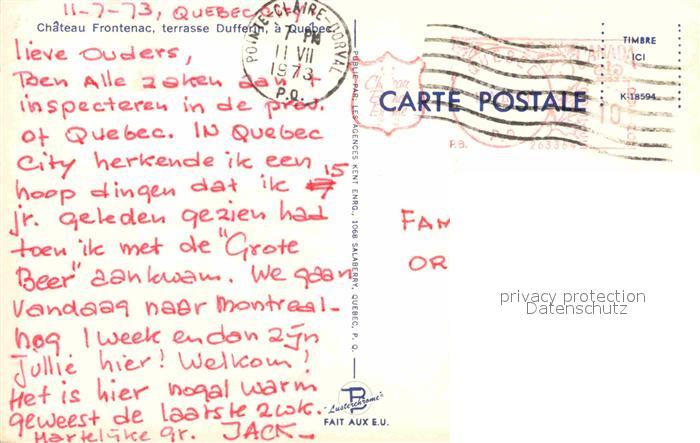 11-7-73, QUEBEC
Château Frontenac, terrasse Dufferin, à Québec.
lieve Ouders,
Ben Alle zaken aan 't
inspecteren in de prov.
of Quebec. IN Quebec
City herkende ik een
hoop dingen dat ik 15
jr. geleden gezien had
toen ik met de "Grote
Beer" aankwam. We gaan
Vandaag naar Montreal-
nog 1 week en dan zijn
jullie hier! Welkom!
Het is hier nogal warm
geweest de laatste 2 wk.
Hartelijke gr. JACK-
POINTE CLAIRE-DORVAL
7 PM
11 VII
1973
P.Q.
PUBLIÉ PAR: LES AGENCES KENT ENRG., 1068 SALABERRY, QUEBEC, P. Q.
"Lusterchrome"
FAIT AUX E.U.
CARTE POSTALE
TIMBRE
ICI
K-18594
CANADA
P.B.
P.Q.
FAM
OR
privacy protection
Datenschutz